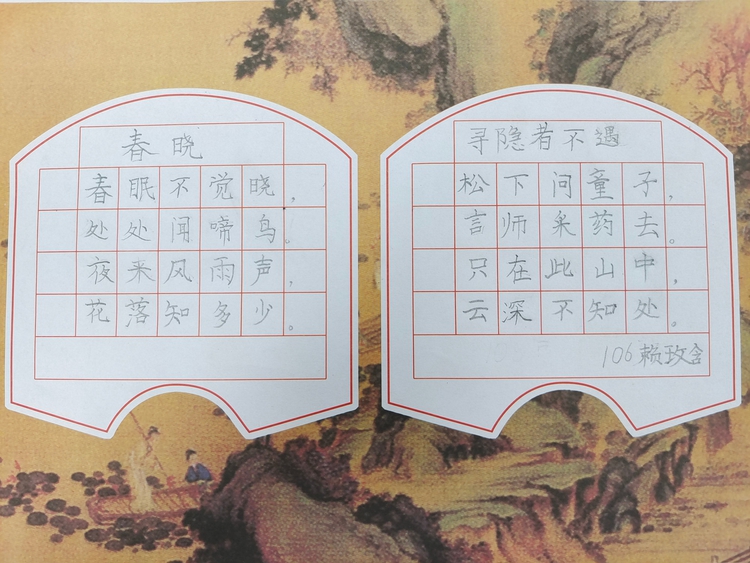 春晓
春眠不觉晓，
处处闻啼鸟。
夜来风雨声，
花落知多少。
寻隐者不遇
松下问童子，
言师采药去。
只在此山中，
云深不知处。
106赖玫含